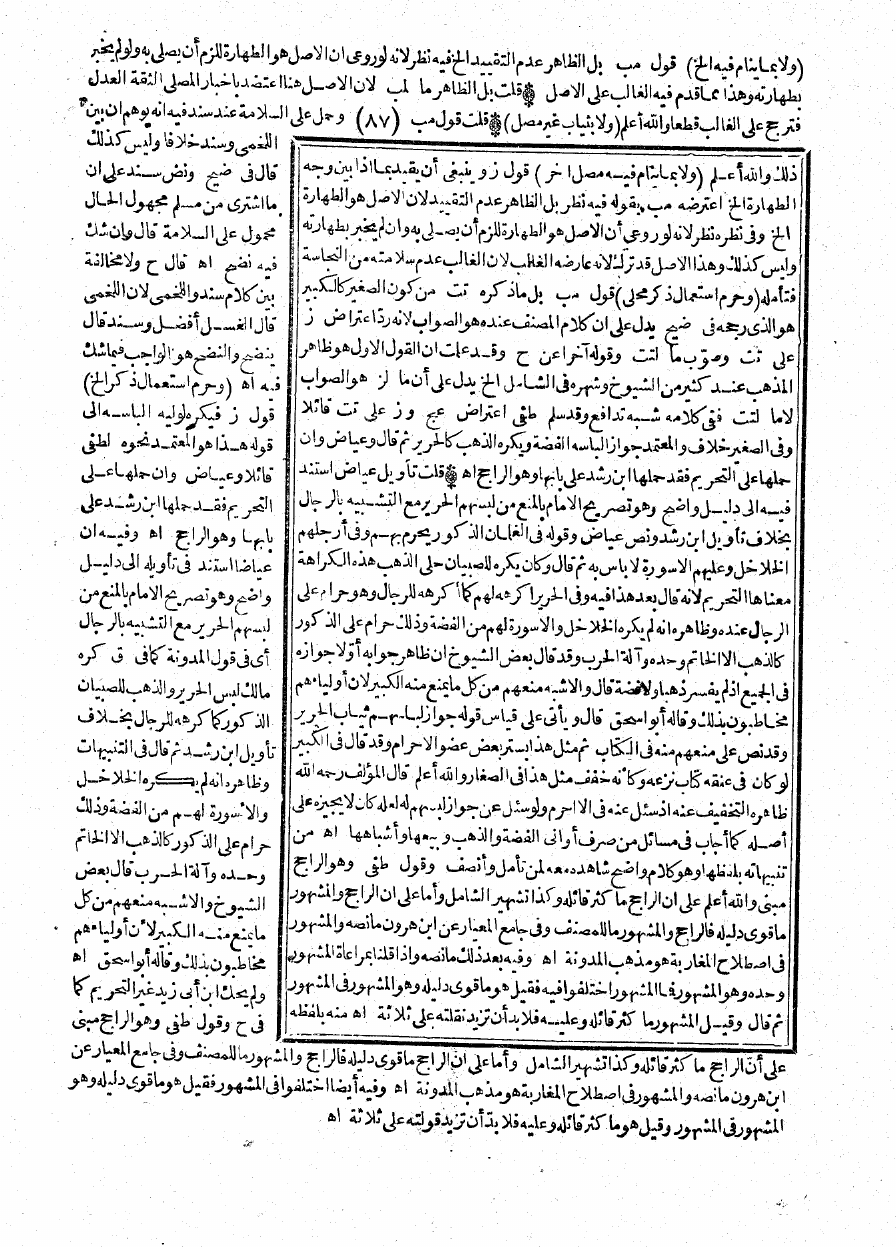 (ولا بما ينام فيه الخ) قول مب بل الظاهر عدم التقييد الخ فيه نظر لانه لو روعى ان الاصل هو الطهارة للزم أن يصلى به ولو لم يخبر
بطهارته وهذا مما قدم فيه الغالب على الاصل قلت بل الظاهر ما لمب لان الاصل هنا اعتضد باخبار المصلى الثقة العدل
فترجح على الغالب قطعا والله أعلم (ولا بثياب غير مصل) قلت قول مب (٨٧) وحمل على السلامة عند سند فيه انه يوهم ان بين
ذلك والله أعلم (ولا بما ينام فيه مصل اخر) قول ز وينبغى أن يقيد بما اذا بين وجه
الطهارة الخ اعترضه مب بقوله فيه نظر بل الظاهر عدم التقييد لان الاصل هو الطهارة
الخ وفى نظره نظر لانه لو روعى أن الاصل هو الطهارة للزم أن يصلى به وان لم يخبر بطهارته
وليس كذلك وهذا الاصل قد ترك لانه عارضه الغالب لان الغالب عدم سلامته من النجاسة
فتأمله (وحرم استعمال ذكر محلى) قول مب بل ما ذكره تت من كون الصغير كالكبير
هو الذى رجحه فى ضيح يدل على ان كلام المصنف عنده هو الصواب لانه رد اعتراض ز
على تت وصوّب ما لتت وقوله آخرا عن ح وقد علمت ان القول الاول هو ظاهر
المذهب عند كثير من الشيوخ وشهره فى الشامل الخ يدل على أن ما لز هو الصواب
لا ما لتت ففى كلامه شبه تدافع وقد سلم طفى اعتراض عج و ز على تت قائلا
وفى الصغير خلاف والمعتمد جواز الباسه الفضة ويكره الذهب كالحرير ثم قال وعياض وان
حملها على التحريم فقد حملها ابن رشد على بابها وهو الراجح اه قلت تأويل عياض استند
فيه الى دليل واضح وهو تصريح الامام بالمنع من لبسهم الحرير مع التشبيه بالرجال
بخلاف تأويل ابن رشد ونص عياض وقوله فى الغلمان الذكور يحرم بهم وفى أرجلهم
الخلاخل وعليهم الاسورة لا باس به ثم قال وكان يكره للصبيان حلى الذهب هذه الكراهة
معناها التحريم لانه قال بعد هذا فيه وفى الحرير اكرهه لهم كما أكرهه للرجال وهو حرام على
الرجال عنده وظاهره انه لم يكره الخلاخل والاسورة لهم من الفضة وذلك حرام على الذكور
كالذهب الا الخاتم وحده وآلة الحرب وقد قال بعض الشيوخ ان ظاهر جوابه أولا جوازه
فى الجميع اذ لم يفسر ذهبا ولا فضة قال والاشبه منعهم من كل ما يمنع منه الكبير لان أولياءهم
مخاطبون بذلك وقاله أبو اسحق قال ويأتى على قياس قوله جواز لباسهم ثياب الحرير
وقد نص على منعهم منه فى الكتاب ثم مثل هذا يستر بعض عضو الاحرام وقد قال فى الكبير
لو كان فى عنقه كتاب نزعه وكأنه خفف مثل هذا فى الصغار والله أعلم قال المؤلف رحمه الله
ظاهره التخفيف عنه اذ سئل عنه فى الاحرام ولو سئل عن جواز لبسهم له لعله كان لا يجيزه على
أصله كما أجاب فى مسائل من صرف أوانى الفضة والذهب وبيعها وأشباهها اه من
تنبيهاته بلفظها وهو كلام واضح شاهده معه لمن تأمل وأنصف وقول طفى وهو الراجح
مبنى والله أعلم على ان الراجح ما كثر قائله وكذا تشهير الشامل وأما على ان الراجح والمشهور
ما قوى دليله فالراجح والمشهور ما للمصنف وفى جامع المعيار عن ابن هرون ما نصه والمشهور
فى اصطلاح المغاربة هو مذهب المدونة اه وفيه بعد ذلك ما نصه واذا قلنا بمراعاة المشهور
وحده وهو المشهور فما المشهور اختلفوا فيه فقيل هو ما قوى دليله وهو المشهور فى المشهور
ثم قال وقيل المشهور ما كثر قائله وعليه فلا بد أن تزيد نقلته على ثلاثة اه منه بلفظه
اللخمى وسند خلافا وليس كذلك
قال فى ضيح ونص سند على ان
ما اشترى من مسلم مجهول الحال
محمول على السلامة قال وان شك
فيه نضح اه قال ح ولا مخالفة
بين كلام سند واللخمى لان اللخمى
قال الغسل أفضل وسند قال
ينضح والنضح هو الواجب فيما شك
فيه اه (وحرم استعمال ذكر الخ)
قول ز فيكره لوليه الباسه الى
قوله هذا هو المعتمد نحوه لطفى
قائلا وعياض وان حملها على
التحريم فقد حملها ابن رشد على
بابها وهو الراجح اه وفيه ان
عياضا استند فى تأويله الى دليل
واضح وهو تصريح الامام بالمنع من
لبسهم الحرير مع التشبيه بالرجال
أى فى قول المدونة كما فى ق كره
مالك لبس الحرير والذهب للصبيان
الذكور كما كرهه للرجال بخلاف
تأويل ابن رشد ثم قال فى التنبيهات
وظاهره انه لم يكره الخلاخل
والاسورة لهم من الفضة وذلك
حرام على الذكور كالذهب الا الخاتم
وحده وآلة الحرب قال بعض
الشيوخ والاشبه منعهم من كل
ما يمنع منه الكبير لان أولياءهم
مخاطبون بذلك وقاله أبو اسحق اه
ولم يحك ابن أبى زيد غير التحريم كما
فى ح وقول طفى وهو الراجح مبنى
على أن الراجح ما كثر قائله وكذا تشهير الشامل وأما على ان الراجح ما قوى دليله فالراجح والمشهور ما للمصنف وفى جامع المعيار عن
ابن هرون ما نصه والمشهور فى اصطلاح المغاربة هو مذهب المدونة اه وفيه أيضا اختلفوا فى المشهور فقيل هو ما قوى دليله وهو
المشهور فى المشهور وقيل هو ما كثر قائله وعليه فلا بد أن تزيد قولته على ثلاثة اه